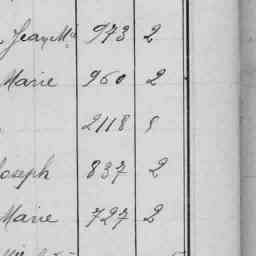 Jean Mie 973 2
Marie 960 2
2118 8
Joseph 837 2
Marie 727 2